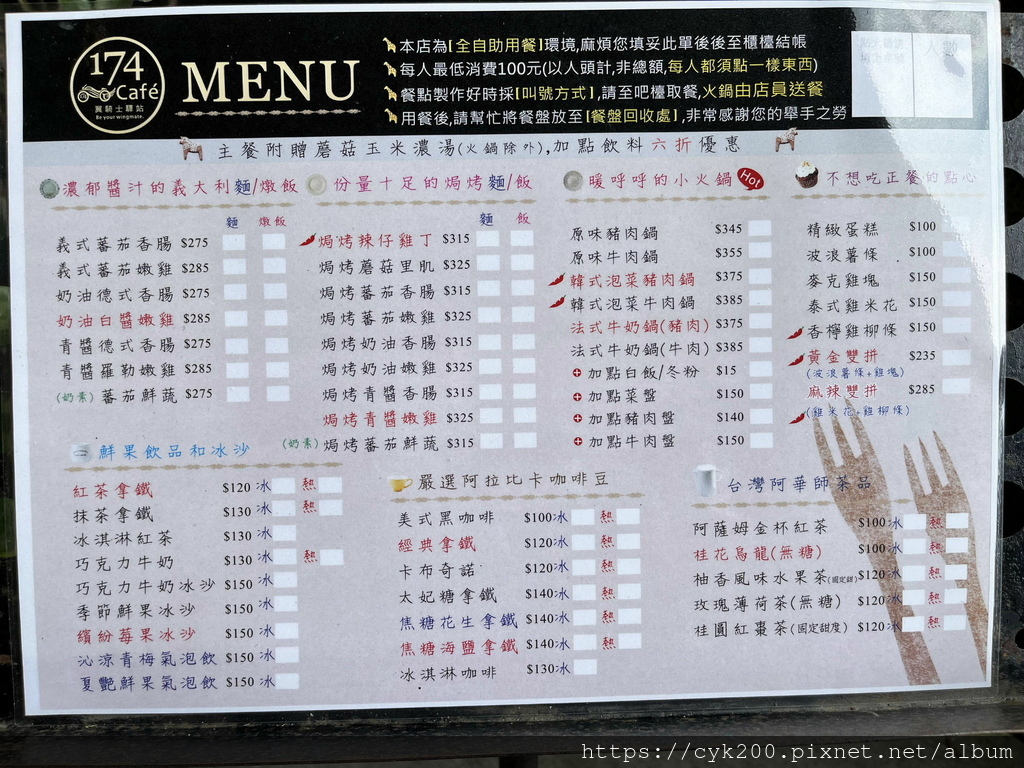 174
Café
翼騎士驛站
Be your wingmate.
MENU
本店為【全自助用餐】環境,麻煩您填妥此單後後至櫃檯結帳
每人最低消費100元(以人頭計,非總額,每人都須點一樣東西)
餐點製作好時採【叫號方式】,請至吧檯取餐,火鍋由店員送餐
用餐後,請幫忙將餐盤放至【餐盤回收處】,非常感謝您的舉手之勞
人數
主餐附贈蘑菇玉米濃湯(火鍋除外),加點飲料六折優惠
濃郁醬汁的義大利麵/燉飯
麵 燉飯
義式蕃茄香腸 $275
義式蕃茄嫩雞 $285
奶油德式香腸 $275
奶油白醬嫩雞 $285
青醬德式香腸 $275
青醬羅勒嫩雞 $285
(奶素)蕃茄鮮蔬 $275
份量十足的焗烤麵/飯
麵 飯
焗烤辣仔雞丁 $315
焗烤蘑菇里肌 $325
焗烤蕃茄香腸 $315
焗烤蕃茄嫩雞 $325
焗烤奶油香腸 $315
焗烤奶油嫩雞 $325
焗烤青醬香腸 $315
焗烤青醬嫩雞 $325
(奶素)焗烤蕃茄鮮蔬 $315
暖呼呼的小火鍋 Hot
原味豬肉鍋 $345
原味牛肉鍋 $355
韓式泡菜豬肉鍋 $375
韓式泡菜牛肉鍋 $385
法式牛奶鍋(豬肉) $375
法式牛奶鍋(牛肉) $385
加點白飯/冬粉 $15
加點菜盤 $150
加點豬肉盤 $140
加點牛肉盤 $150
不想吃正餐的點心
精緻蛋糕 $100
波浪薯條 $100
麥克雞塊 $150
泰式雞米花 $150
香檸雞柳條 $150
黃金雙拼 $235
(波浪薯條+雞塊)
麻辣雙拼 $285
(雞米花+雞柳條)
鮮果飲品和冰沙
紅茶拿鐵 $120 冰 熱
抹茶拿鐵 $130 冰 熱
冰淇淋紅茶 $130 冰
巧克力牛奶 $130 冰 熱
巧克力牛奶冰沙 $150 冰
季節鮮果冰沙 $150 冰
繽紛莓果冰沙 $150 冰
沁涼青梅氣泡飲 $150 冰
夏艷鮮果氣泡飲 $150 冰
嚴選阿拉比卡咖啡豆
美式黑咖啡 $100冰 熱
經典拿鐵 $120冰 熱
卡布奇諾 $120冰 熱
太妃糖拿鐵 $140冰 熱
焦糖花生拿鐵 $140冰 熱
焦糖海鹽拿鐵 $140冰 熱
冰淇淋咖啡 $130冰
台灣阿華師茶品
阿薩姆金杯紅茶 $100冰 熱
桂花烏龍(無糖) $100冰 熱
柚香風味水果茶(固定甜) $120冰 熱
玫瑰薄荷茶(無糖) $120冰 熱
桂圓紅棗茶(固定甜度) $120冰 熱
https://cyk200.pixnet.net/album